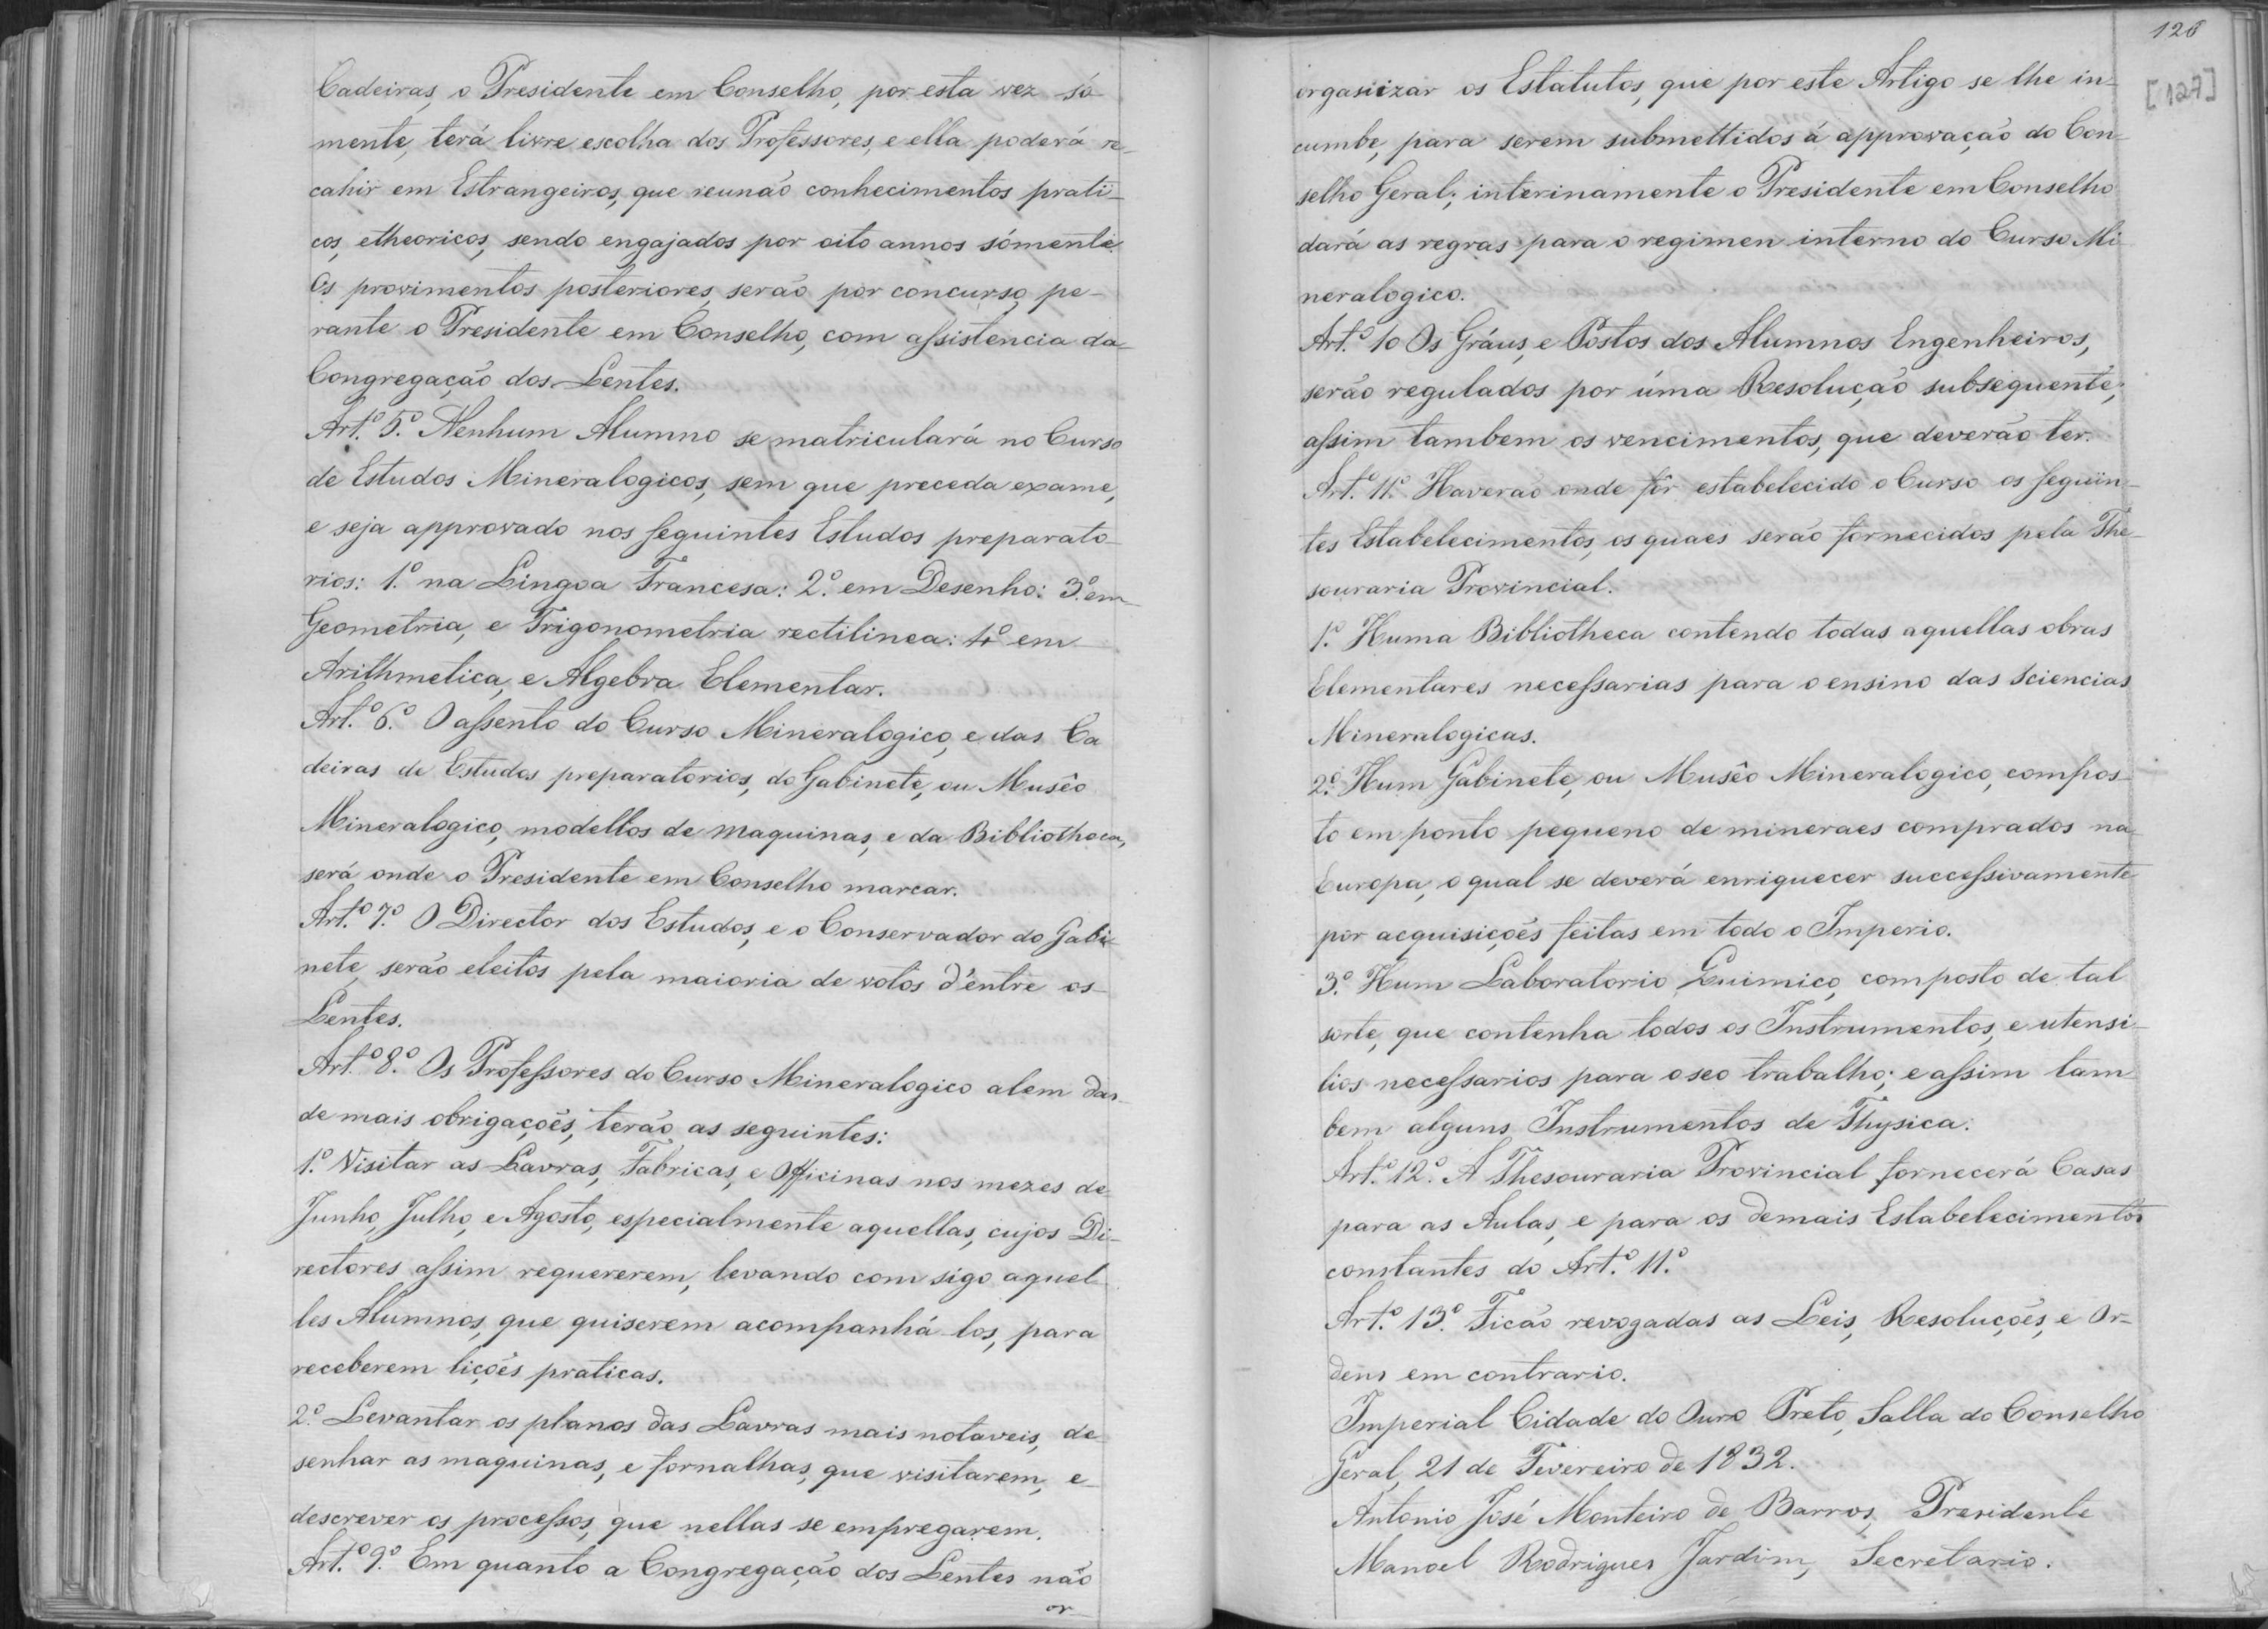 Cadeiras, o Presidente em Conselho, por esta vez só
mente, terá livre escolha dos Professores, e ella poderá re-
cahir em Estrangeiros, que reunão conhecimentos prati-
cos, etheoricos, sendo engajados por oito annos sómente.
Os provimentos posteriores, serão por concurso pe-
rante o Presidente em Conselho, com assistencia da
Congregação dos Lentes.
Art.º 5.º Nenhum Alumno se matriculará no Curso
de Estudos Mineralogicos, sem que preceda exame,
e seja approvado nos seguintes Estudos preparato-
rios: 1.º na Lingoa Francesa: 2.º em Desenho: 3.º em
Geometria, e Trigonometria rectilinea: 4.º em
Arithmetica, e Algebra Elementar.
Art.º 6.º O assento do Curso Mineralogico, e das Ca
deiras de Estudos preparatorios, do Gabinete, ou Musêo
Mineralogico, modellos de maquinas, e da Bibliotheca,
será onde o Presidente em Conselho marcar.
Art.º 7.º O Director dos Estudos, e o Conservador do Gabi-
nete, serão eleitos pela maioria de votos d'entre os
Lentes.
Art.º 8.º Os Professores do Curso Mineralogico alem das
de mais obrigações, terão as seguintes:
1.º Visitar as Lavras, Fabricas, e Officinas nos mezes de
Junho, Julho, e Agosto, especialmente aquellas, cujos Di-
rectores assim requererem, levando com sigo aquel-
les Alumnos, que quiserem acompanhá-los, para
receberem lições praticas.
2.º Levantar os planos das Lavras mais notaveis, de
senhar as maquinas, e fornalhas, que visitarem, e
descrever os processos, que nellas se empregarem.
Art.º 9.º Em quanto a Congregação dos Lentes não
or
126
[127]
organizar os Estatutos, que por este Artigo se lhe in-
cumbe, para serem submettidos á approvação do Con-
selho Geral; interinamente o Presidente em Conselho
dará as regras para o regimen interno do Curso Mi
neralogico.
Art.º 10 Os Gráus, e Postos dos Alumnos Engenheiros,
serão regulados por úma Resolução subsequente;
assim tambem os vencimentos, que deverão ter.
Art.º 11.º Haverão onde fôr estabelecido o Curso os seguin-
tes Estabelecimentos, os quaes serão fornecidos pela The-
souraria Provincial.
1.º Huma Bibliotheca contendo todas aquellas obras
Elementares necessarias para o ensino das Sciencias
Mineralogicas.
2.º Hum Gabinete, ou Musêo Mineralogico, compos-
to em ponto pequeno de mineraes comprados na
Europa, o qual se deverá enriquecer successivamente
por acquisições feitas em todo o Imperio.
3.º Hum Laboratorio Quimico, composto de tal
sorte, que contenha todos os Instrumentos, e utensi-
lios necessarios para o seo trabalho; e assim tam
bem alguns Instrumentos de Physica.
Art.º 12.º A Thesouraria Provincial fornecerá Casas
para as Aulas, e para os demais Estabelecimentos
constantes do Art.º 11.º
Art.º 13.º Ficão revogadas as Leis, Resoluções, e Or-
dens em contrario.
Imperial Cidade do Ouro Preto, Salla do Conselho
Geral, 21 de Fevereiro de 1832.
Antonio José Monteiro de Barros, Presidente
Manoel Rodrigues Jardim, Secretario.